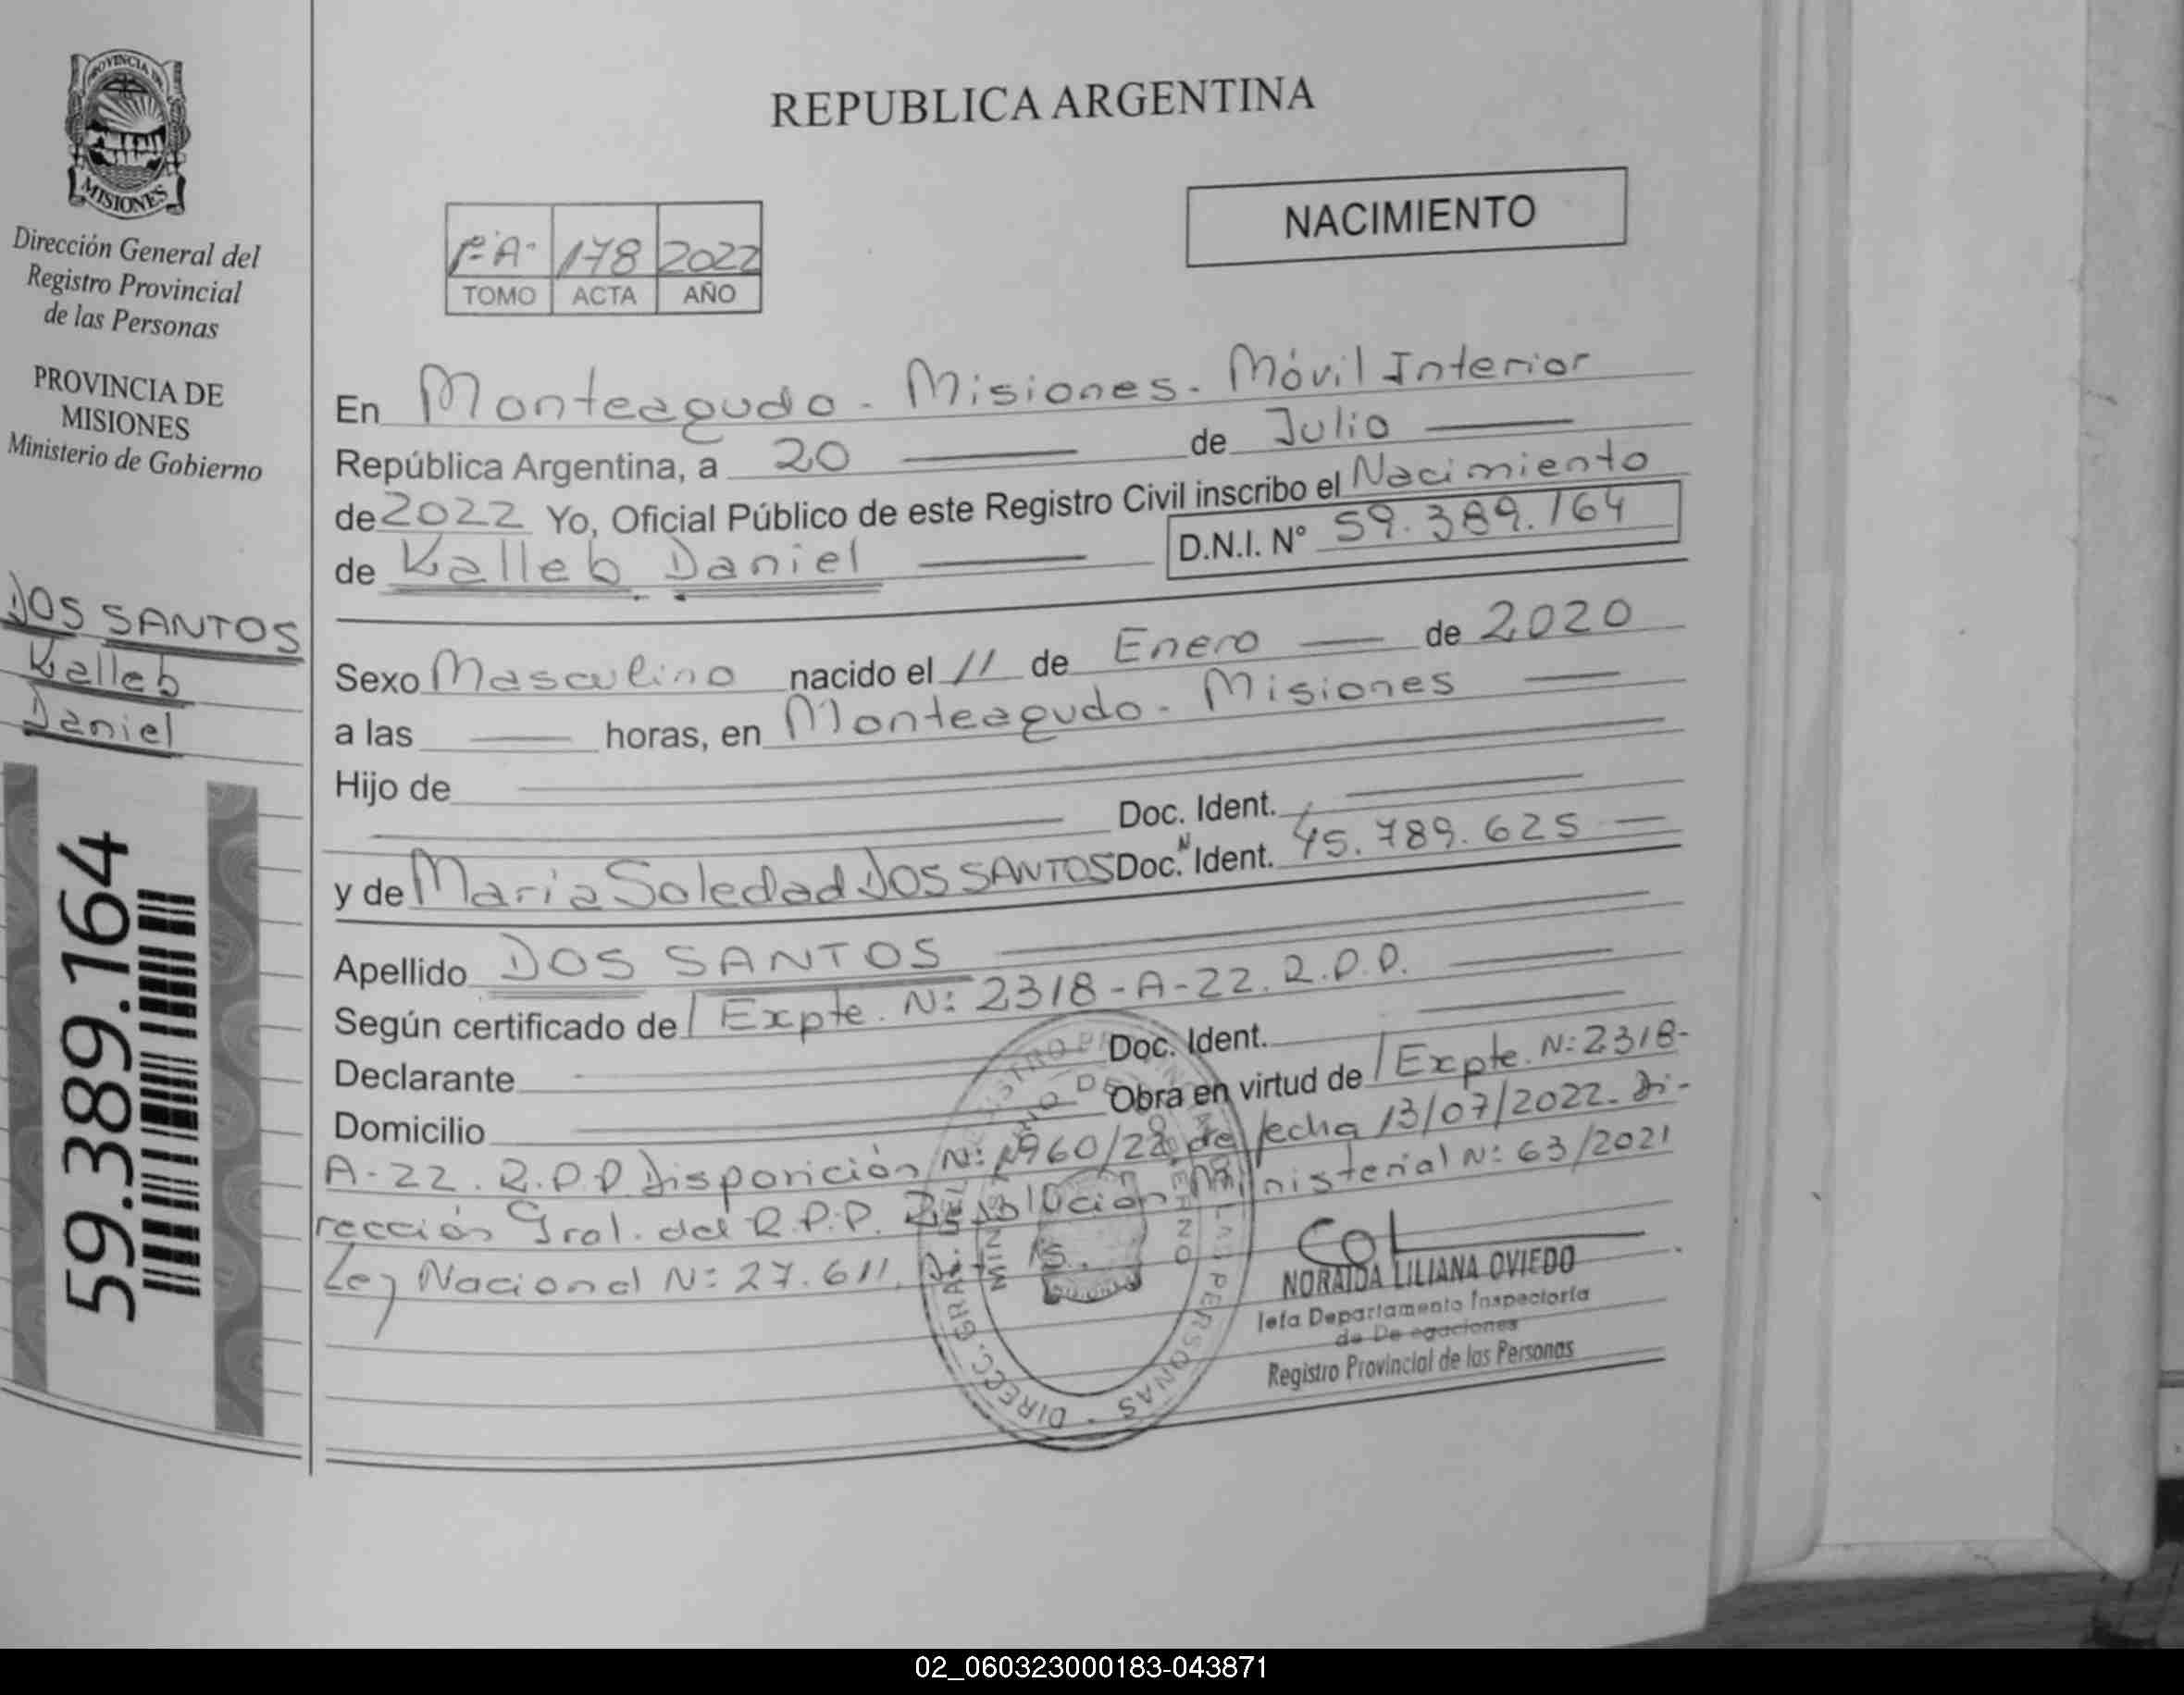 PROVINCIA DE
MISIONES
Dirección General del
Registro Provincial
de las Personas
PROVINCIA DE
MISIONES
Ministerio de Gobierno
DOS SANTOS
Kalleb
Daniel
59.389.164
REPUBLICA ARGENTINA
NACIMIENTO
1º A- 178 2022
TOMO ACTA AÑO
En Monteagudo - Misiones - Móvil Interior
República Argentina, a 20 de Julio
de 2022 Yo, Oficial Público de este Registro Civil inscribo el Nacimiento
de Kalleb Daniel D.N.I. Nº 59.389.164
Sexo Masculino nacido el 11 de Enero de 2020
a las horas, en Monteagudo - Misiones
Hijo de
Doc. Ident.
y de Maria Soledad DOS SANTOS Doc. N Ident. 45.789.625
Apellido DOS SANTOS
Según certificado de Expte. N: 2318-A-22. R.P.P.
Declarante Doc. Ident.
Domicilio Obra en virtud de Expte. N: 2318-
A-22. R.P.P. Disposición N: 960/22 de fecha 13/07/2022. Di-
rección Gral. del R.P.P. Resolución Ministerial N: 63/2021
Ley Nacional N: 27.611.
DIRECC. GRAL. DEL REGISTRO PROVINCIAL DE LAS PERSONAS
MINISTERIO DE GOBIERNO
NORAIDA LILIANA OVIEDO
Jefa Departamento Inspectoría
de Delegaciones
Registro Provincial de las Personas
02_060323000183-043871